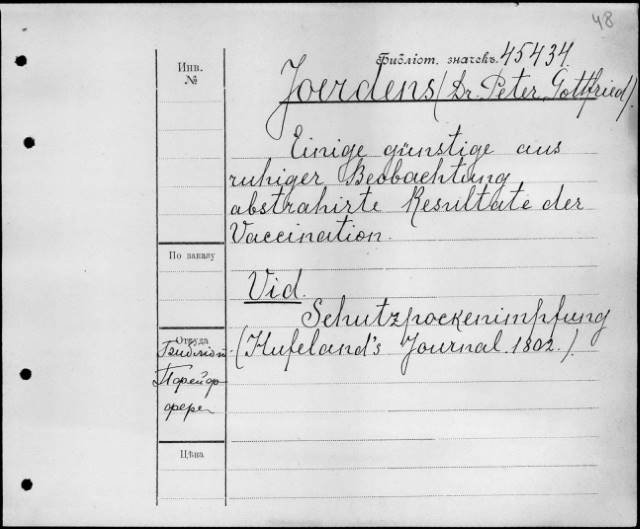 48
Библіот. значекъ. 45434.
Инв.
№
Joerdens (Dr. Peter Gottfried).
Einige günstige aus
ruhiger Beobachtung
abstrahirte Resultate der
Vaccination.
По заказу
Vid.
Schutzpockenimpfung
(Hufeland's Journal. 1802.).
Откуда
Цѣна